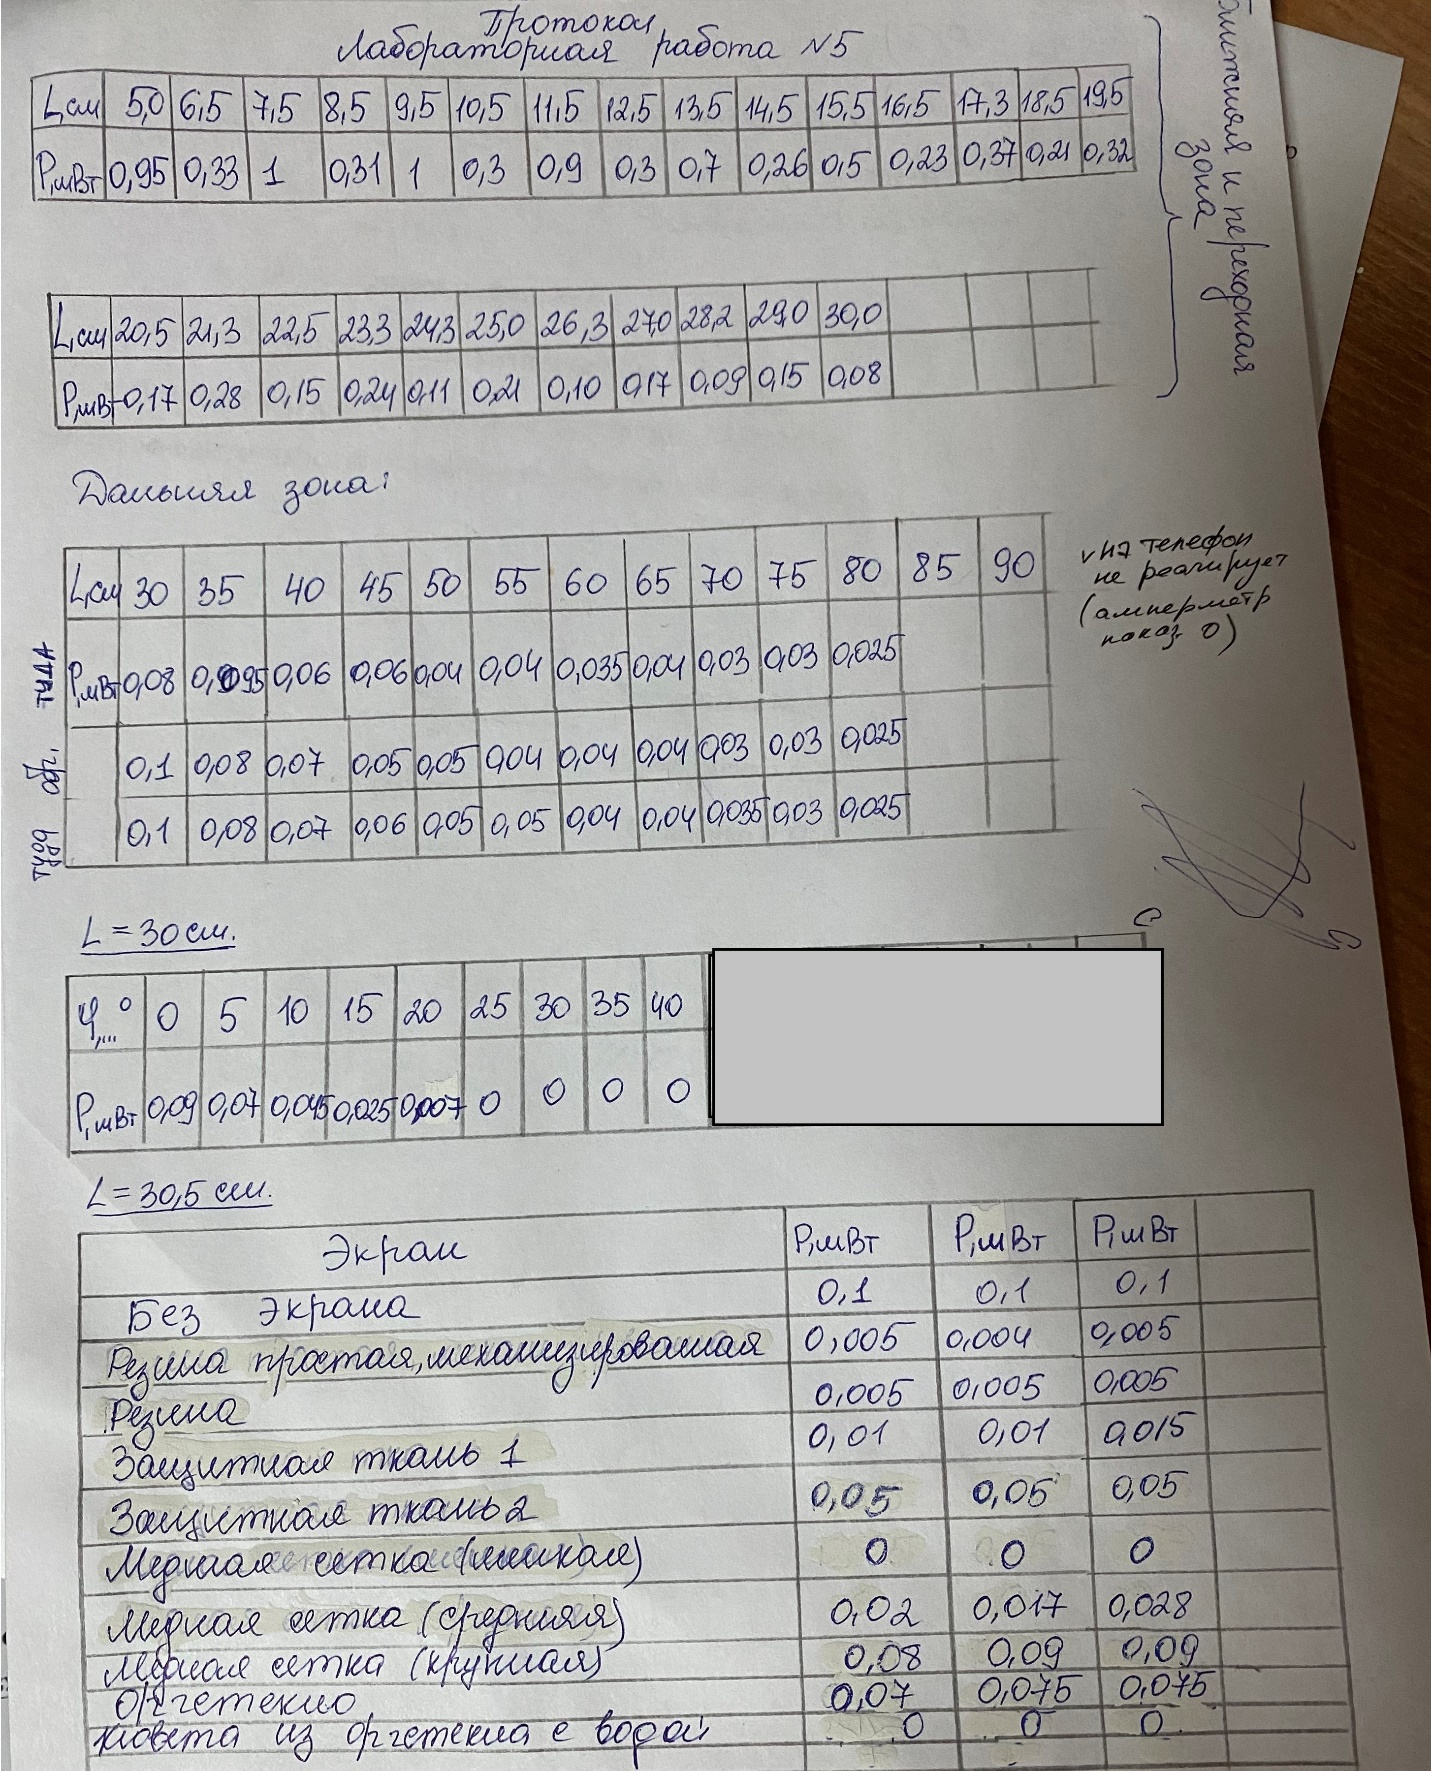 Протокол
Лабораторная работа №5
L,см 5,0 6,5 7,5 8,5 9,5 10,5 11,5 12,5 13,5 14,5 15,5 16,5 17,3 18,5 19,5
P,мВт 0,95 0,33 1 0,31 1 0,3 0,9 0,3 0,7 0,26 0,5 0,23 0,37 0,21 0,32
Ближняя и переходная
зона
L,см 20,5 21,3 22,5 23,3 24,3 25,0 26,3 27,0 28,2 29,0 30,0
P,мВт 0,17 0,28 0,15 0,24 0,11 0,21 0,10 0,17 0,09 0,15 0,08
Дальняя зона:
L,см 30 35 40 45 50 55 60 65 70 75 80 85 90
туда P,мВт 0,08 0,095 0,06 0,06 0,04 0,04 0,035 0,04 0,03 0,03 0,025
обр. 0,1 0,08 0,07 0,05 0,05 0,04 0,04 0,04 0,03 0,03 0,025
туда 0,1 0,08 0,07 0,06 0,05 0,05 0,04 0,04 0,035 0,03 0,025
на телефон
не реагирует
(амперметр
показ. 0)
L = 30 см.
φ,...° 0 5 10 15 20 25 30 35 40
P,мВт 0,09 0,07 0,045 0,025 0,007 0 0 0 0
L = 30,5 см.
Экран P,мВт P,мВт P,мВт
Без экрана 0,1 0,1 0,1
Резина простая, механизированная 0,005 0,004 0,005
Резина 0,005 0,005 0,005
Защитная ткань 1 0,01 0,01 0,015
Защитная ткань 2 0,05 0,05 0,05
Медная сетка (мелкая) 0 0 0
Медная сетка (средняя) 0,02 0,017 0,028
Медная сетка (крупная) 0,08 0,09 0,09
Оргстекло 0,07 0,075 0,075
Кювета из оргстекла с водой 0 0 0